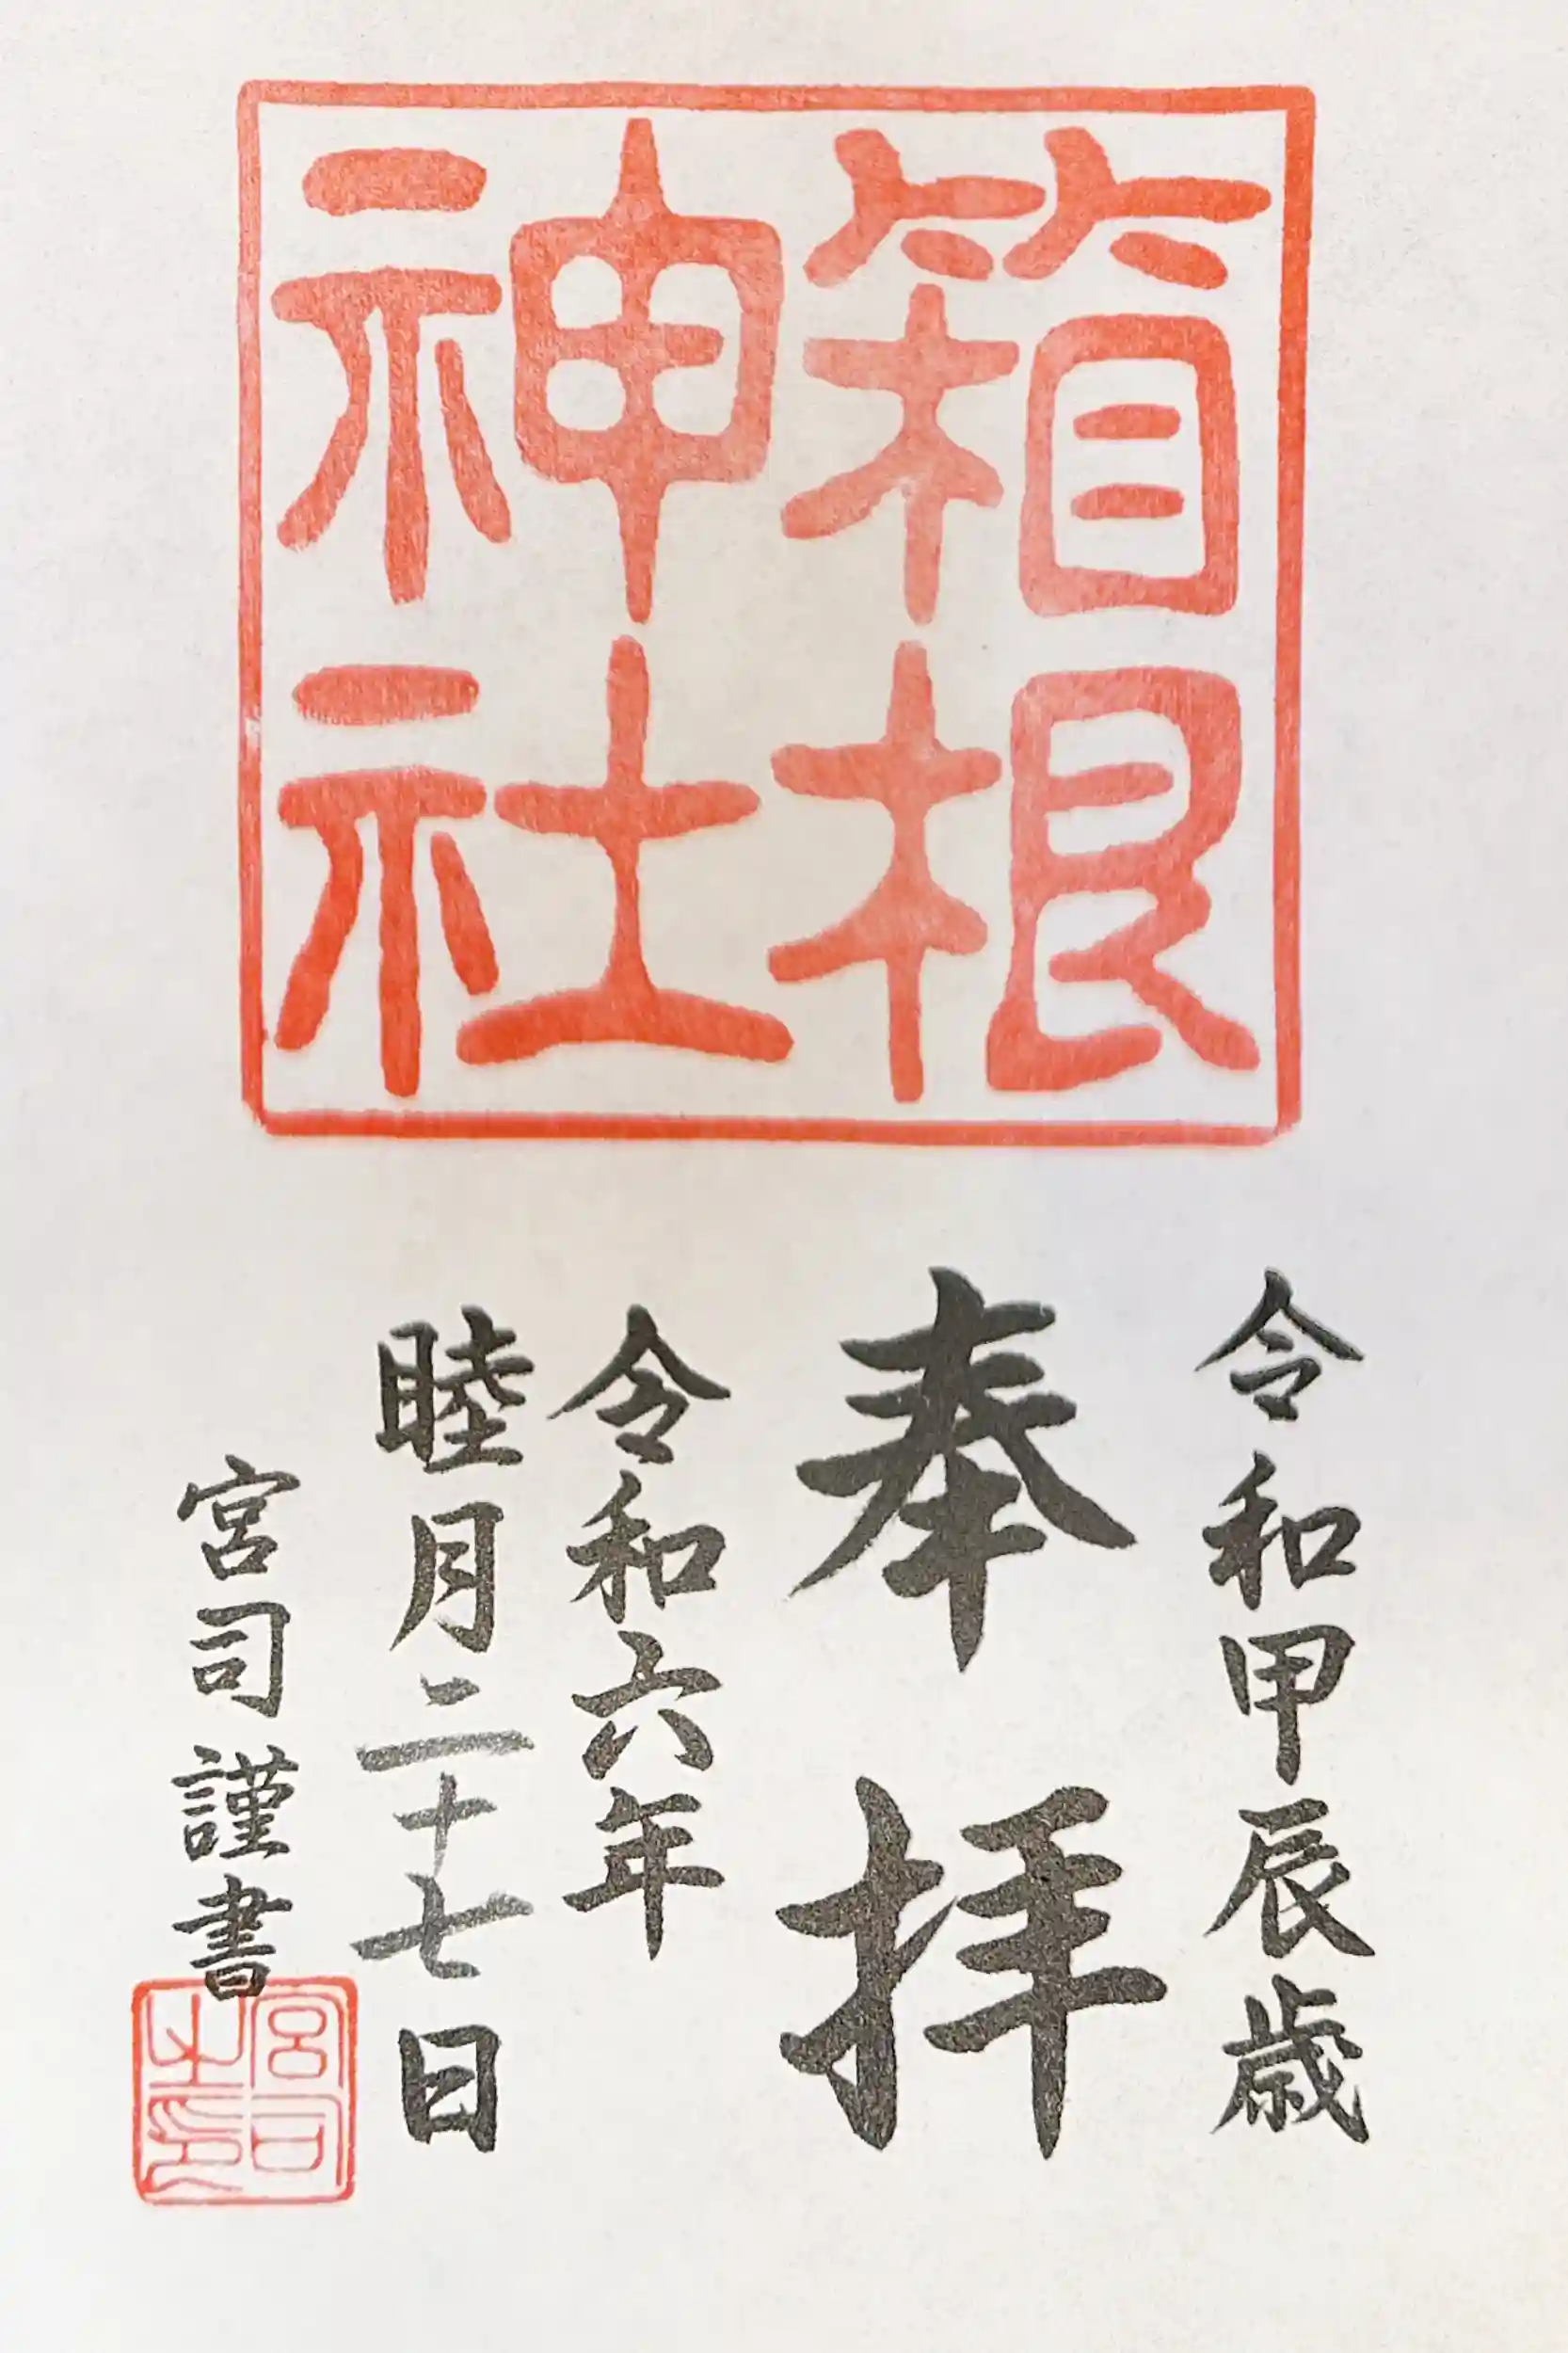 箱根
神社
令和甲辰歳
奉拝
令和六年
睦月二十七日
宮司謹書
宮司
之印